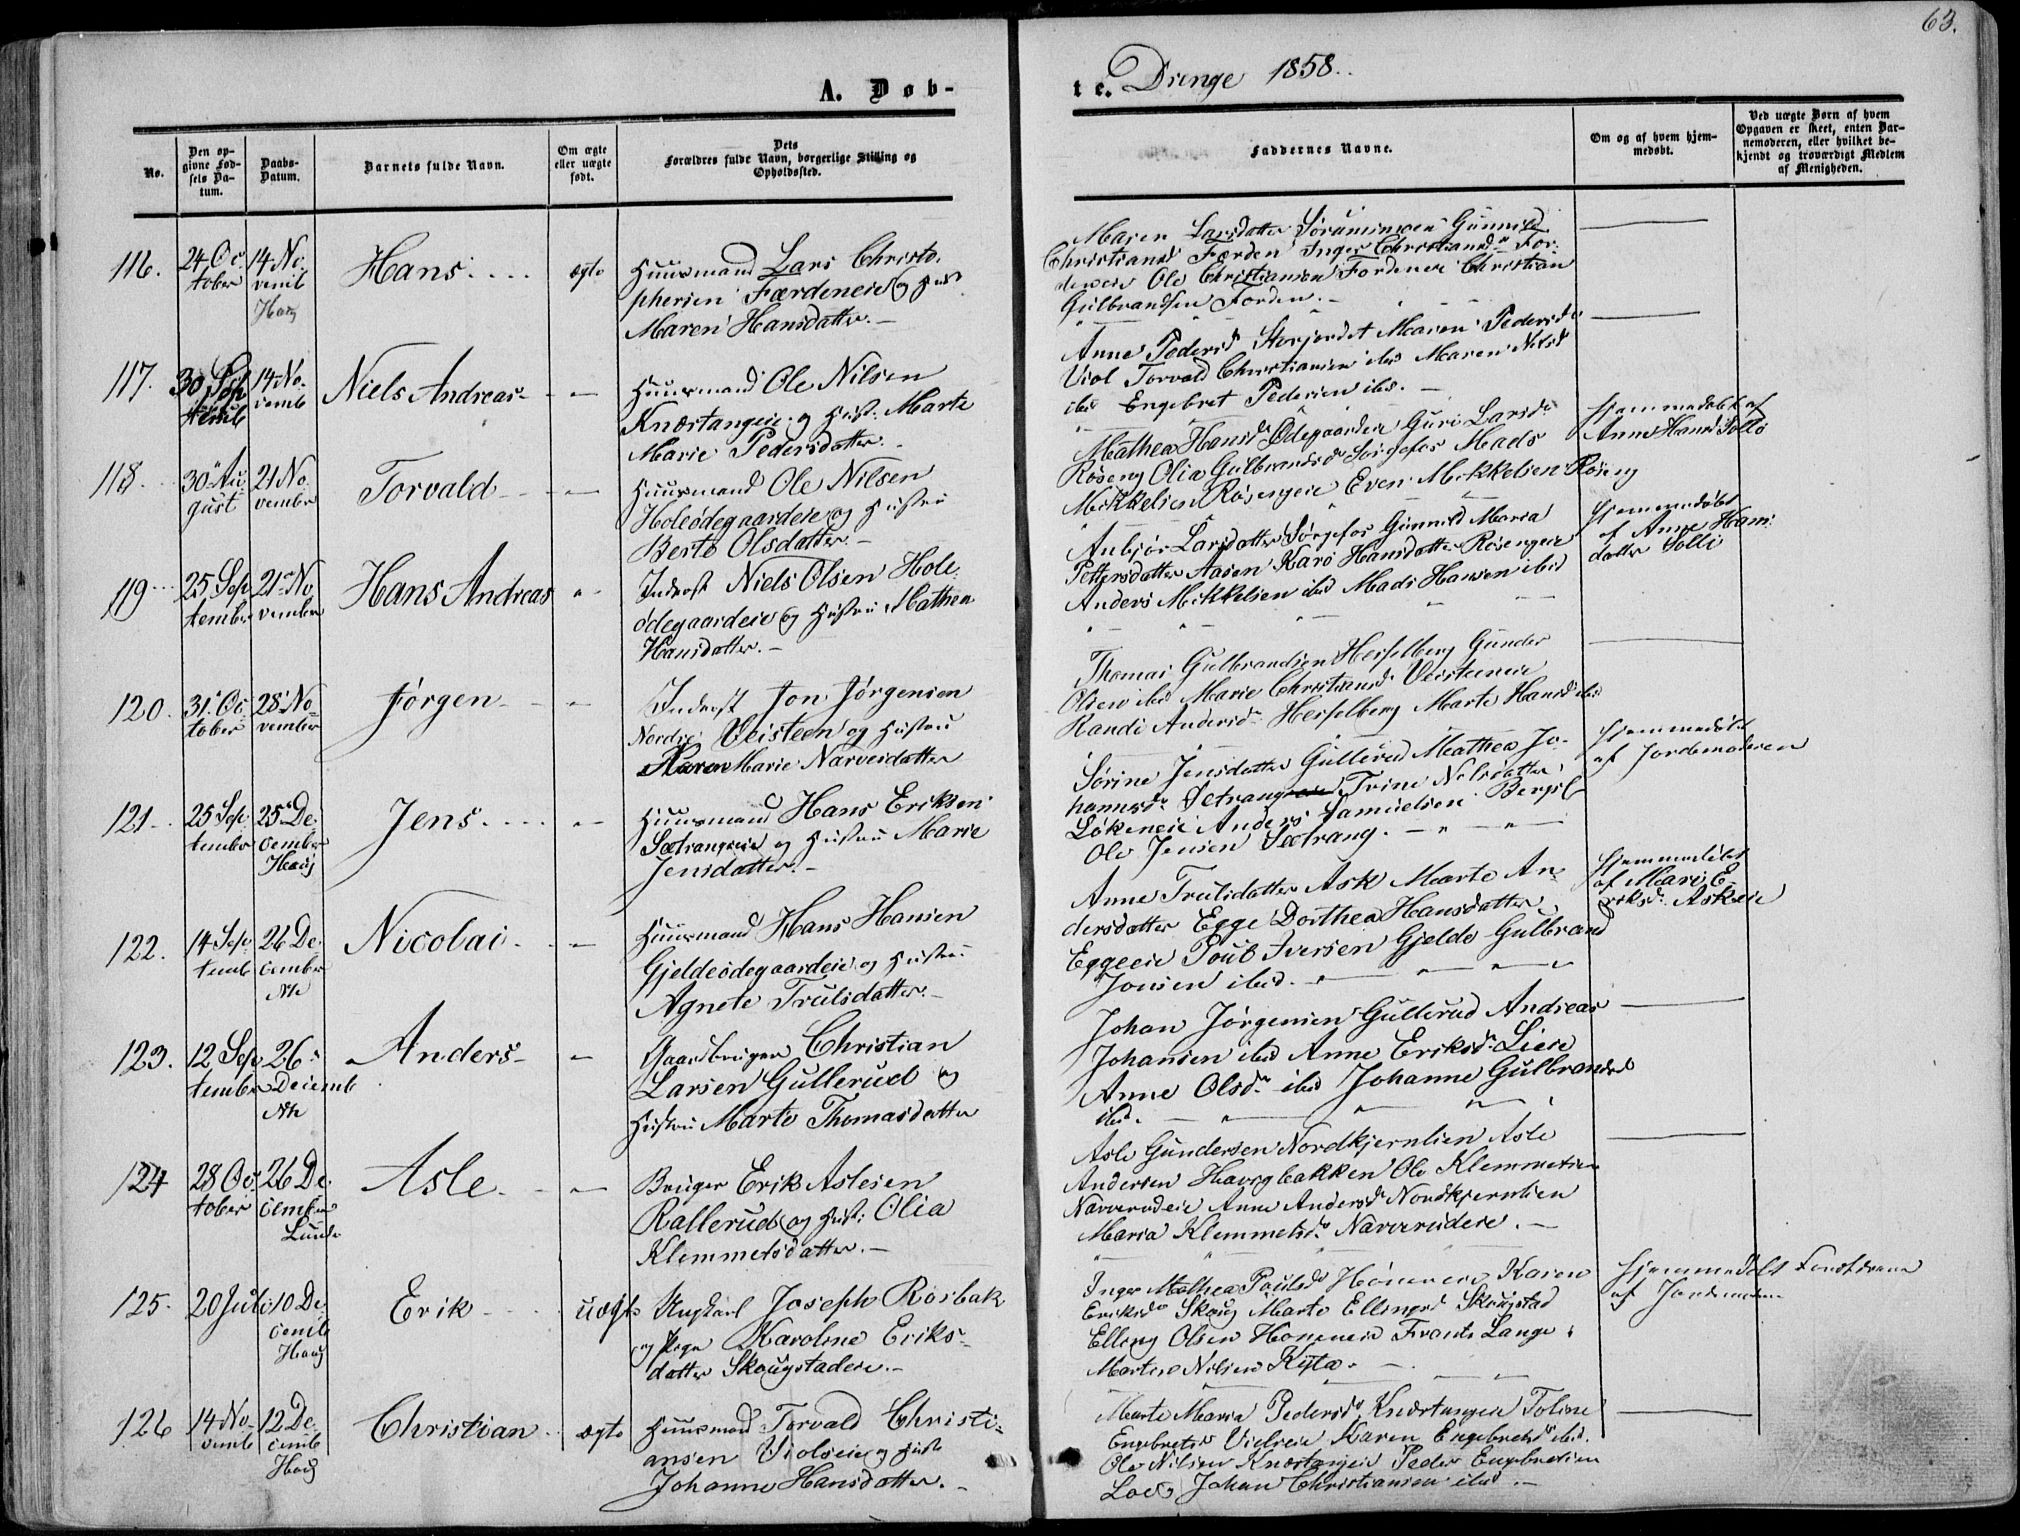 63.
A. Døb-
te. Drenge 1858.
No.
Den op-
givne Fød-
sels Da-
tum.
Daabs-
Datum.
Barnets fulde Navn.
Om ægte
eller uægte
født.
Dets
Forældres fulde Navn, borgerlige Stilling og
Opholdssted.
Faddernes Navne.
Om og af hvem hjem-
medøbt.
Ved uægte Børn af hvem
Opgaven er skeet, enten Bar-
nemoderen, eller hvilket be-
kjendt og troværdigt Medlem
af Menigheden.
116.
24 Oc
tober
14 No
vemb
Haug
Hans
ægte
Huusmand Lars Christo
phersen Færdeneie og Hust
Maren Hansdatter.
Maren Larsdatter Gunnild
Christiansd Færden Inger Christiansdr For-
deneie Ole Christiansen Fordeneie Christian
Gulbrandsen Forden.
117.
30 Sep
temb
14 No-
vemb
Niels Andreas
Huusmand Ole Nilsen
Knæstangeie og Hust. Marte
Marie Pedersdatter.
Anne Pedersd Storjordet Maren Pedersdr
Viol Torvald Christiansen ibd Maren Nilsd
ibd Engebret Pedersen ibd.
118.
30 Au
gust
21 No
vember
Torvald
Huusmand Ole Nilsen
Holeødegaardeie og Hustru
Berte Olsdatter.
Mathea Hansdr Ødegaarden Guri Larsdr
Røseng Olia Gulbrandsdr Sørgefos Mads
Mikkelsen Røsengeie Even Mikkelsen Røseng
Hjemmedøbt af
Anne Hansd Solli
119
25 Sep
tember
21 No
vember
Hans Andreas
Inderst Niels Olsen Hole
ødegaardeie og Hustru Mathea
Hansdatter.
Anbjør Larsdatter Sørgefos Gunnild Maria
Pettersdatter Aasen Kari Hansdatter Røsengeie
Anders Mikkelsen ibd Mads Hansen ibd
Hjemmedøbt
af Anne Hans
datter Solli
120.
31 Oc
tober
28 No-
vember
Jørgen
Inderst Jon Jørgensen
Nordre Veisteen og Hustru
Karen Marie Narvesdatter
Thomas Gulbrandsen Hesselberg Gunder
Olsen ibd Marie Christiansd Veisteneie
Randi Andersdr Hesselberg Marte Hansd ibd
121
25 Sep
tember
25 De
cember
Haug
Jens
Huusmand Hans Eriksen
Sætrangeie og Hustru Marie
Jensdatter.
Sørine Jensdatter Gullerud Mathea Jo-
hannesdr Setrang Trine Nilsdatter
Løkeneie Anders Samuelsen
Ole Jensen Sætrang.
Hjemmedøbt
af Jordemoderen
122.
14 Sep
temb
26 De
cember
Nth
Nicolai
Huusmand Hans Hansen
Gjeldeødegaardeie og Hustru
Agnete Trulsdatter.
Anne Trulsdatter Ask Marte An-
dersdatter Egge Dorthea Hansdatter
Eggeeie Poul Iversen Gjelde Gulbrand
Jonsen ibd.
Hjemmedøbt
af Mari E-
riksdr Askeie
123.
12 Sep
tember
26
Decemb
Nth
Anders
Gaardbruger Christian
Larsen Gullerud og
Hustru Marte Thomasdatter
Johan Jørgensen Gullerud Andreas
Johansen ibd Anne Eriksdr Lieie
Anne Olsdr ibd Johanne Gulbrandsd
ibd.
124
28 Oc
tober
26 De
cember
Lunde
Asle
Bruger Erik Aslesen
Rallerud og Hust: Olia
Klemmetsdatter.
Asle Gundersen Nordkjernlien Asle
Andersen Haugbakken Ole Klemmetsen
Naverudeie Anne Andersdr Nordkjernlien
Maria Klemmetsdr Naverudeie.
125.
20 Juli
10 De
cemb
Haug
Erik
uægte
Ungkarl Joseph Rösbak
og Pige Karoline Eriks-
datter Skougstadeie.
Inger Mathea Paulsdr Høneneie Karen
Eriksdr Skoug Marte Ellingsd Skougstad
Elling Olsen Høneneie Frants Lange
Martin Nilsen
Hjemmedøbt
af Jordemoderen
126
14 No-
vemb
12 De
cemb
Haug
Christian
ægte
Huusmand Torvald Christi-
ansen Violseie og Hust
Johanne Hansdatter.
Marte Maria Pedersdr Knæstangeie Toline
Engebretsdr Violseie Karen Engebretsdr ibd.
Ole Nilsen Knæstangeie Peder Engebretsen
Johan Christiansen ibd